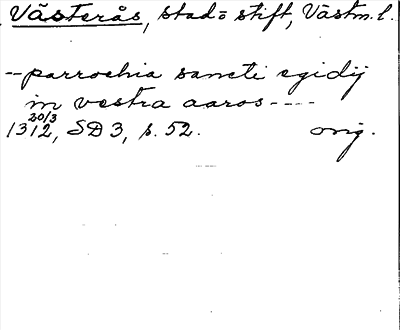 Västerås, stad o stift, Västm. l.
-- parrochia sancti egidij
in vestra aaros ----
20/3
1312, SD 3, s. 52. orig.